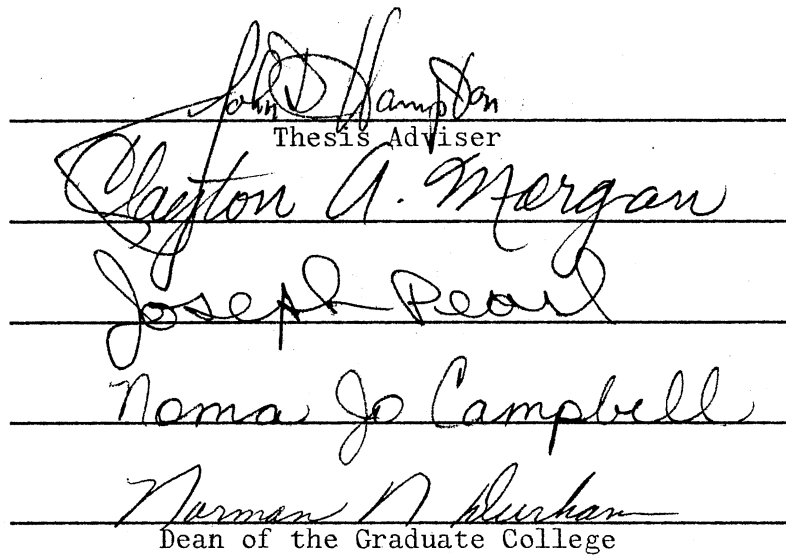 John D Hampton
Thesis Adviser
Clayton A. Morgan
Joseph Pearl
Noma Jo Campbell
Norman N Durham
Dean of the Graduate College